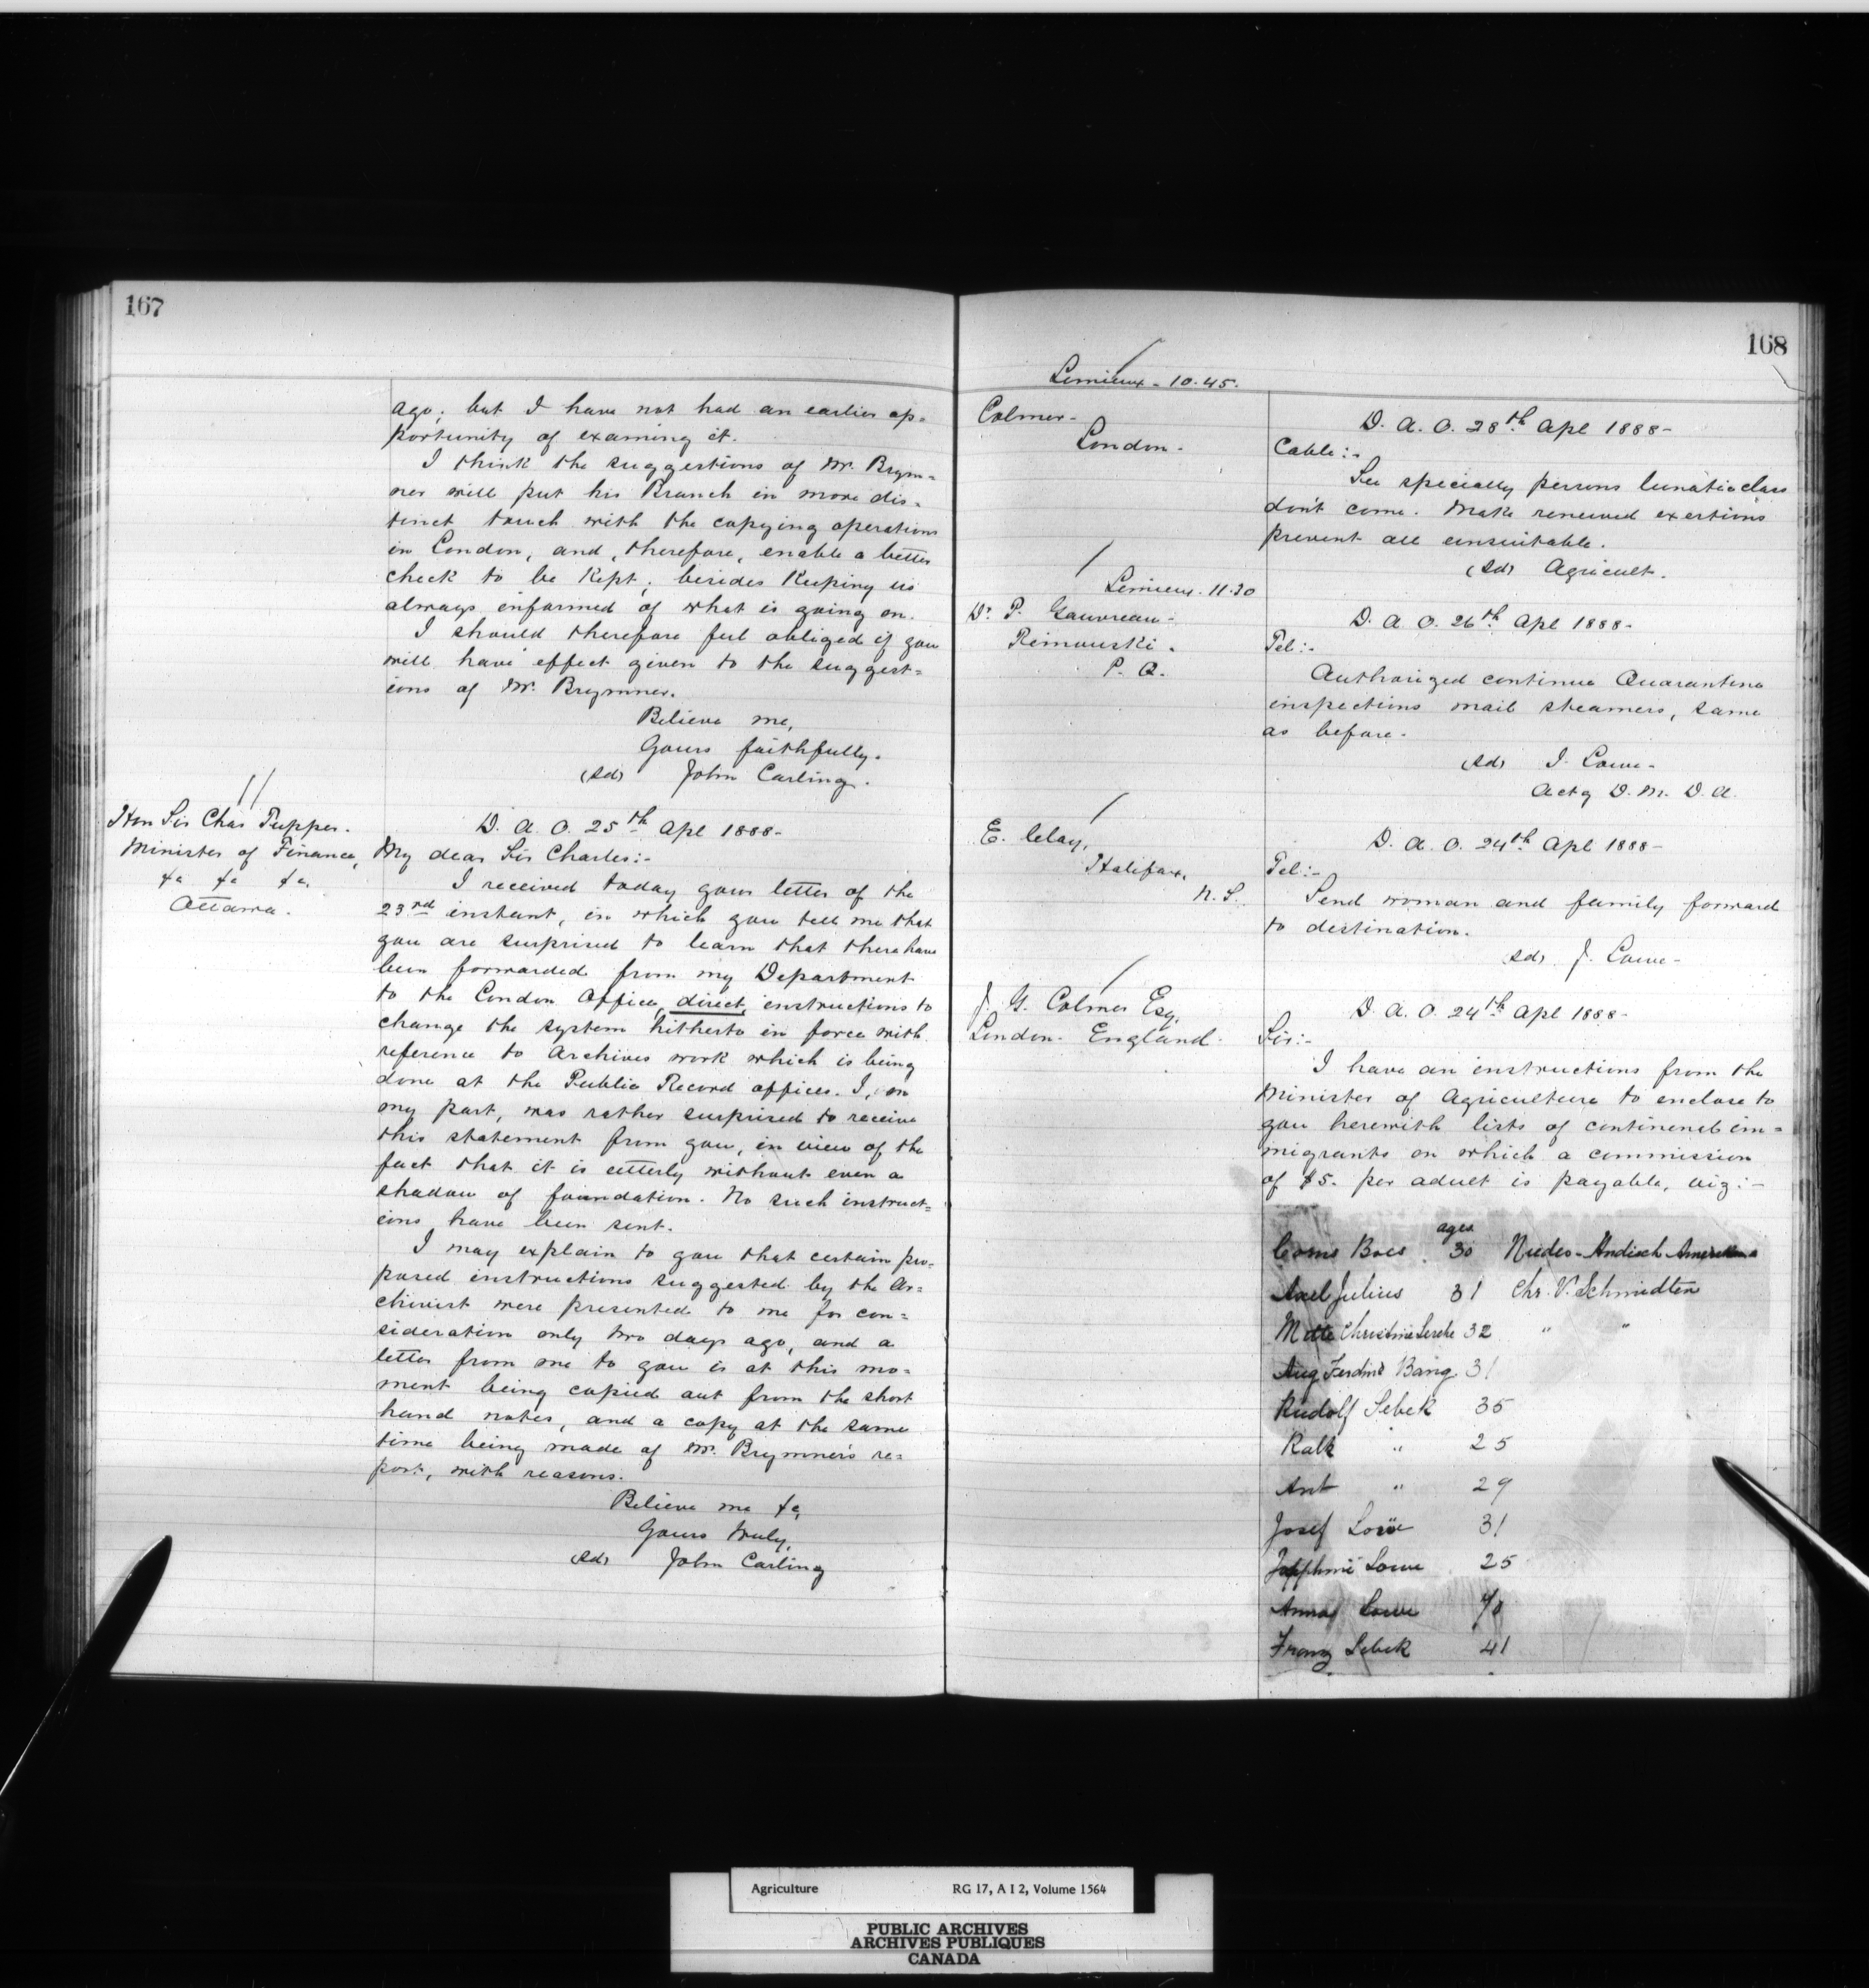 167
ago; but I have not had an earlier op=
portunity of examing it.
I think the suggestions of Mr. Brym=
ner will put his Branch in more dis=
tinct touch with the copying operations
in London, and, therefore, enable a better
check to be kept; besides keeping us
always informed of what is going on.
I should therefore feel obliged if you
will have effect given to the suggest=
ions of Mr. Brymner.
Believe me,
Yours faithfully.
(sd) John Carling.
Hon Sir Chas Tupper.
Minister of Finance,
&c &c &c.
Ottawa.
D. A. O. 25th Apl 1888-
My dear Sir Charles:-
I received today your letter of the
23rd instant, in which you tell me that
you are surprised to learn that there have
been forwarded from my Department
to the London Office, direct, instructions to
change the system hitherto in force with
reference to Archives work which is being
done at the Public Record offices. I, on
my part, was rather surprised to receive
this statement from you, in view of the
fact that it is utterly without even a
shadow of foundation. No such instruct=
ions have been sent.
I may explain to you that certain pro=
posed instructions suggested by the Ar=
chivist were presented to me for con=
sideration only two days ago, and a
letter from me to you is at this mo=
ment being copied out from the short
hand notes, and a copy at the same
time being made of Mr. Brymner's re=
port, with reasons.
Believe me &c,
Yours truly,
(sd) John Carling
168
Lemieux - 10.45.
Colmer-
London-
D. A. O. 28th Apl 1888-
Cable:-
See specially persons lunatic class
don't come. Make renewed exertions
prevent all unsuitable.
(sd) Agricult.
Lemieux. 11.30
Dr P. Gauvreau-
Rimouski.
P. Q.
D. A. O. 26th Apl 1888-
Tel:-
Authorized continue Quarantine
inspections mail steamers, same
as before.
(sd) J. Lowe-
Actg D. M. D. A.
E. Clay,
Halifax,
N. S.
D. A. O. 24th Apl 1888-
Tel:-
Send woman and family forward
to destination.
(sd) J. Lowe-
J. G. Colmer Esq,
London. England.
D. A. O. 24th Apl 1888-
Sir:-
I have an instructions from the
Minister of Agriculture to enclose to
you herewith lists of continenal im=
migrants on which a commission
of $5. per adult is payable, viz:-
ages
Boes 30
Axel Julius 31 Chr. V. Schmidten
Mette Christine Lerche 32 " "
Aug Ferdind Bang 31
Rudolf Sebek 35
Kalk " 25
Ant " 29
Josef Lowe 31
Lowe 25
Anna Lowe
Franz Sebek 41
Agriculture RG 17, A I 2, Volume 1564
PUBLIC ARCHIVES
ARCHIVES PUBLIQUES
CANADA